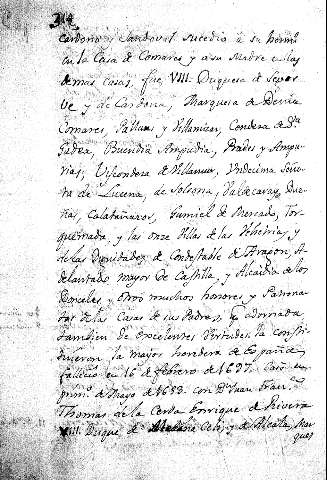 Cardona y Sandoval sucedio a su herm.º
en la Casa de Comares y a su Madre en las
demas casas, fue VIII. Duquesa de Segor
ve y de Cardona, Marquesa de Denia
Comares, Pallars y Villamizar, Condesa de S.ta
Gadea, Buendia Ampudia, Prades y Ampu
rias, Vizcondesa de Villamur, Undecima Seño
ra de Lucena, de Solsona, Valdecaray, Due
ñas, Calatañazor, Gumiel de Mercado, Tor
quemada, y las onze Villas de las Behetrias, y
de las Dignidades de Condestable de Aragon, A
delantado mayor De Castilla, y Alcaidia de los
Donceles, y otro muchos honores y Patrona
tos de las Casas de sus Padres, y adornada
tambien de excelentes Virtudes la consti
tuieron la mayor heredera de España
fallecio en 16 de febrero de 1697. Casó en
prim.º de Mayo de 1653. con D.n Juan Fran.co
Thomas de la Cerda Enriquez de Rivera
VIII. Duque de Medina Celi, y de Alcala, Mar
ques